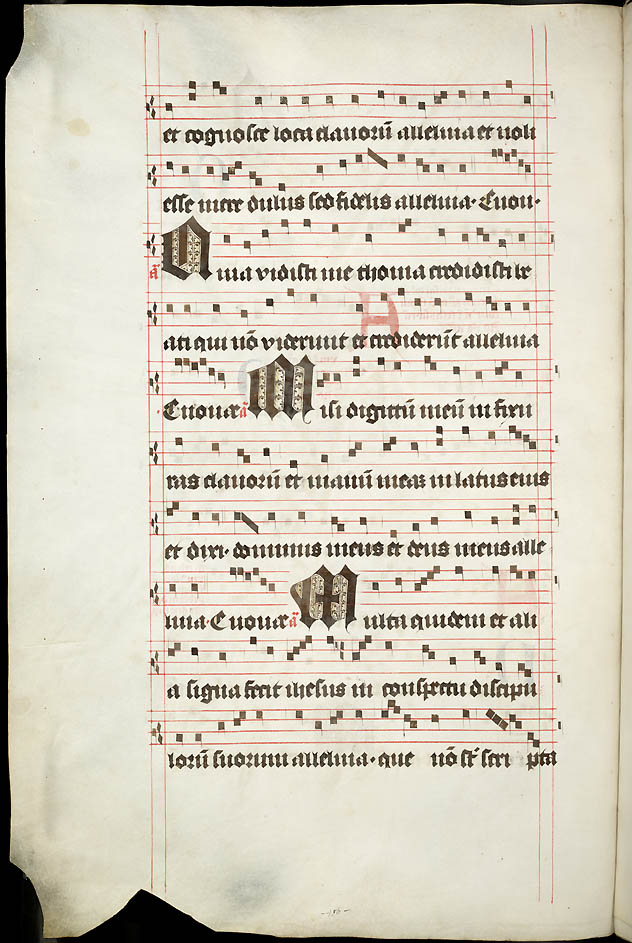 et cognosce loca clavorū alleluia et noli
esse incredulus sed fidelis alleluia· Euou·
Quia vidisti me thoma credidisti be
ati qui nō viderunt et crediderūt alleluia
Euouae Nisi digitum meū in fixu
ras clavorū et manū meaz in latus eius
et dixi· dominus meus et deus meus alle
luia· Euouae Multa quidem et ali
a signa fecit ihesus in conspectu discipu
lorū suorum alleluia· que nō st̄ scri pta